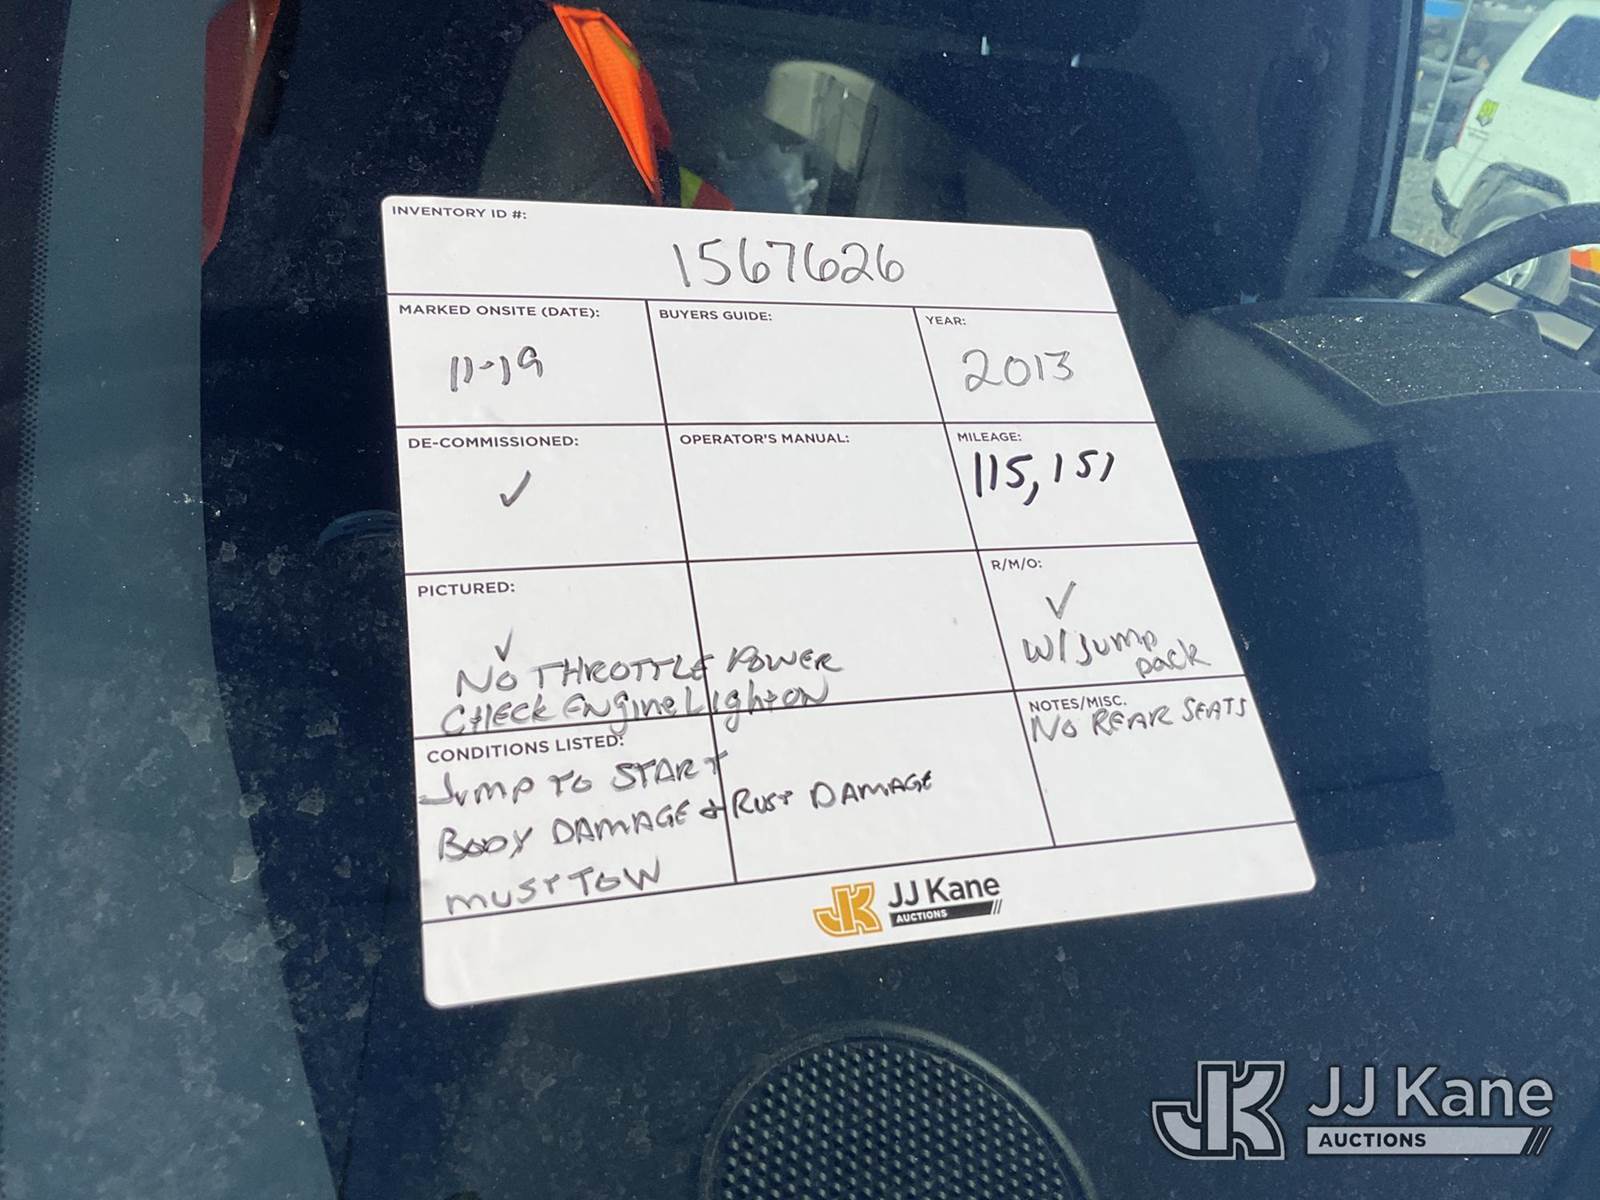 INVENTORY ID #:
1567626
MARKED ONSITE (DATE):
11-19
BUYERS GUIDE:
YEAR:
2013
DE-COMMISSIONED:
✓
OPERATOR'S MANUAL:
MILEAGE:
115,151
PICTURED:
✓
NO THROTTLE POWER
CHECK ENgine Light ON
R/M/O:
✓
W/ Jump
pack
CONDITIONS LISTED:
Jump TO START
BODY DAMAGE + RUST DAMAGE
MUST TOW
NOTES/MISC.
NO REAR SEATS
JK JJ Kane
AUCTIONS
JK JJ Kane
AUCTIONS